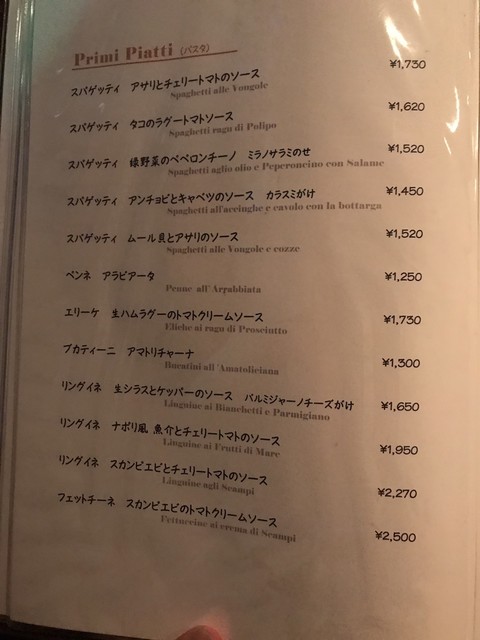 Primi Piatti (パスタ)
スパゲッティ アサリとチェリートマトのソース ¥1,730
Spaghetti alle Vongole
スパゲッティ タコのラグートマトソース ¥1,620
Spaghetti ragu di Polipo
スパゲッティ 緑野菜のペペロンチーノ ミラノサラミのせ ¥1,520
Spaghetti aglio olio e Peperoncino con Salame
スパゲッティ アンチョビとキャベツのソース カラスミがけ ¥1,450
Spaghetti all'accinghe e cavolo con la bottarga
スパゲッティ ムール貝とアサリのソース ¥1,520
Spaghetti alle Vongole e cozze
ペンネ アラビアータ ¥1,250
Penne all'Arrabbiata
エリーケ 生ハムラグーのトマトクリームソース ¥1,730
Eliche ai ragu di Prosciutto
ブカティーニ アマトリチャーナ ¥1,300
Bucatini all'Amatoliciana
リングイネ 生シラスとケッパーのソース パルミジャーノチーズがけ ¥1,650
Linguine ai Bianchetti e Parmigiano
リングイネ ナポリ風 魚介とチェリートマトのソース ¥1,950
Linguine ai Frutti di Mare
リングイネ スカンピエビとチェリートマトのソース ¥2,270
Linguine agli Scampi
フェットチーネ スカンピエビのトマトクリームソース ¥2,500
Fettuccine ai crema di Scampi